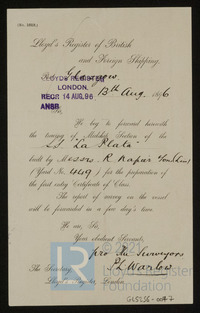 Lloyd's Register of British
and Foreign Shipping.
Glasgow
LLOYDS REGISTER
LONDON.
RECD 14 AUG. 96
ANSD
13th Aug 1896
We beg to forward herewith
the tracing of Midship Section of the
"La Plata"
built by Messrs R. Napier & Sons
(Yard No. 449) for the preparation of
the first entry Certificate of Class.
The Report on the vessel
will be forwarded in a few day's time.
We are, Sir,
Your obedient Servants,
pro The Surveyors
The Secretary,
Lloyd's Register, London.